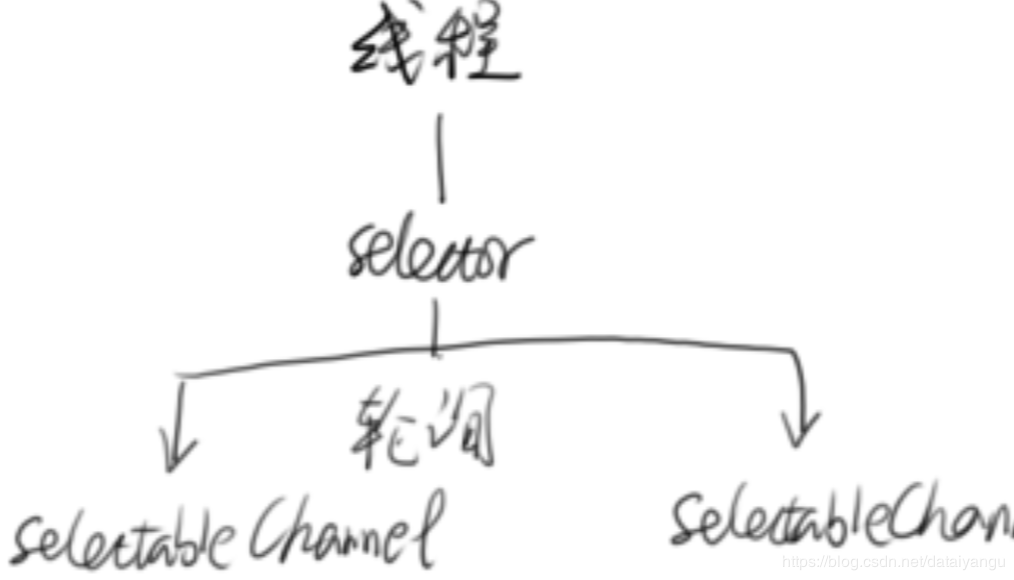 线程
selector
轮询
selectableChannel
selectableChan
https://blog.csdn.net/dataiyangu